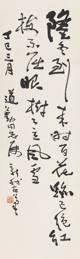 隆冬到来时百花迹已绝红
梅不屈服树树立风雪
丁巳三月
道勤同志属